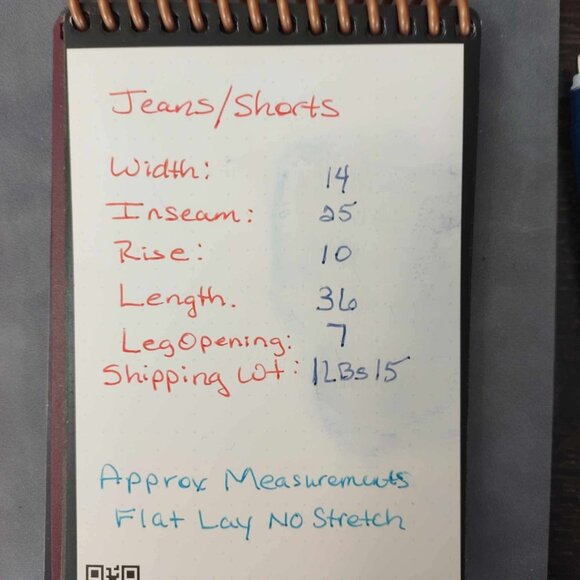 Jeans/Shorts
Width: 14
Inseam: 25
Rise: 10
Length. 36
Leg Opening: 7
Shipping Wt: 1LBs 15
Approx Measurements
Flat Lay No Stretch